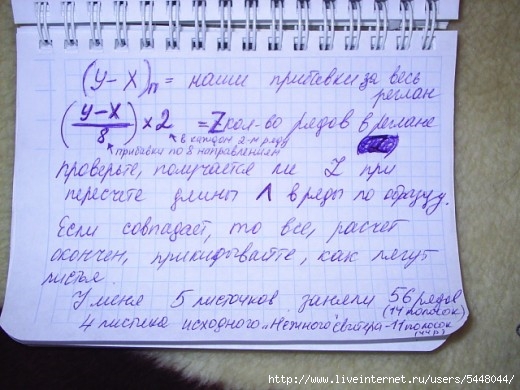 (y-x)п = наши прибавки за весь
реглан
(y-x / 8) × 2 = Z кол-во рядов в реглане
в каждом 2-м ряду
прибавки по 8 направлениям
проверьте, получается ли Z при
пересчете длины Λ в ряды по образцу.
Если совпадает, то все, расчет
окончен, прикидывайте, как лягут
листья.
У меня 5 листочков заняли 56 рядов
(14 полосок)
4 листика исходного "Нежного" свитера - 11 полосок
(44 р)
http://www.liveinternet.ru/users/5448044/